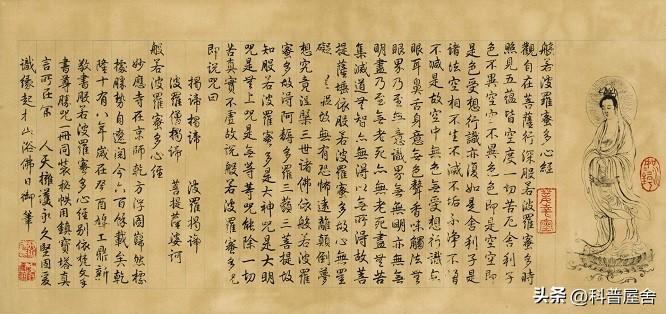 般若波羅蜜多心經
觀自在菩薩行深般若波羅蜜多時
照見五蘊皆空度一切苦厄舍利子
色不異空空不異色色即是空空即
是色受想行識亦復如是舍利子是
諸法空相不生不滅不垢不淨不增
不減是故空中無色無受想行識無
眼耳鼻舌身意無色聲香味觸法無
眼界乃至無意識界無無明亦無無
明盡乃至無老死亦無老死盡無苦
集滅道無智亦無得以無所得故菩
提薩埵依般若波羅蜜多故心無罣
礙無罣礙故無有恐怖遠離顛倒夢
想究竟涅槃三世諸佛依般若波羅
蜜多故得阿耨多羅三藐三菩提故
知般若波羅蜜多是大神咒是大明
咒是無上咒是無等等咒能除一切
苦真實不虛故說般若波羅蜜多咒
即說咒曰
揭諦揭諦 波羅揭諦
波羅僧揭諦 菩提薩婆訶
般若波羅蜜多心經
妙應寺在京師乾方浮圖巋然標
勝勢自遼閱今六百餘載矣乾
隆十有八年歲在癸酉 工鼎新
敬書般若波羅蜜多心經別依梵文
書尊勝咒一冊同裝秘帙用鎮寶塔真
言所在 人天擁護永久堅固爰
識緣起 浴佛日御筆
头条 @科普屋舍